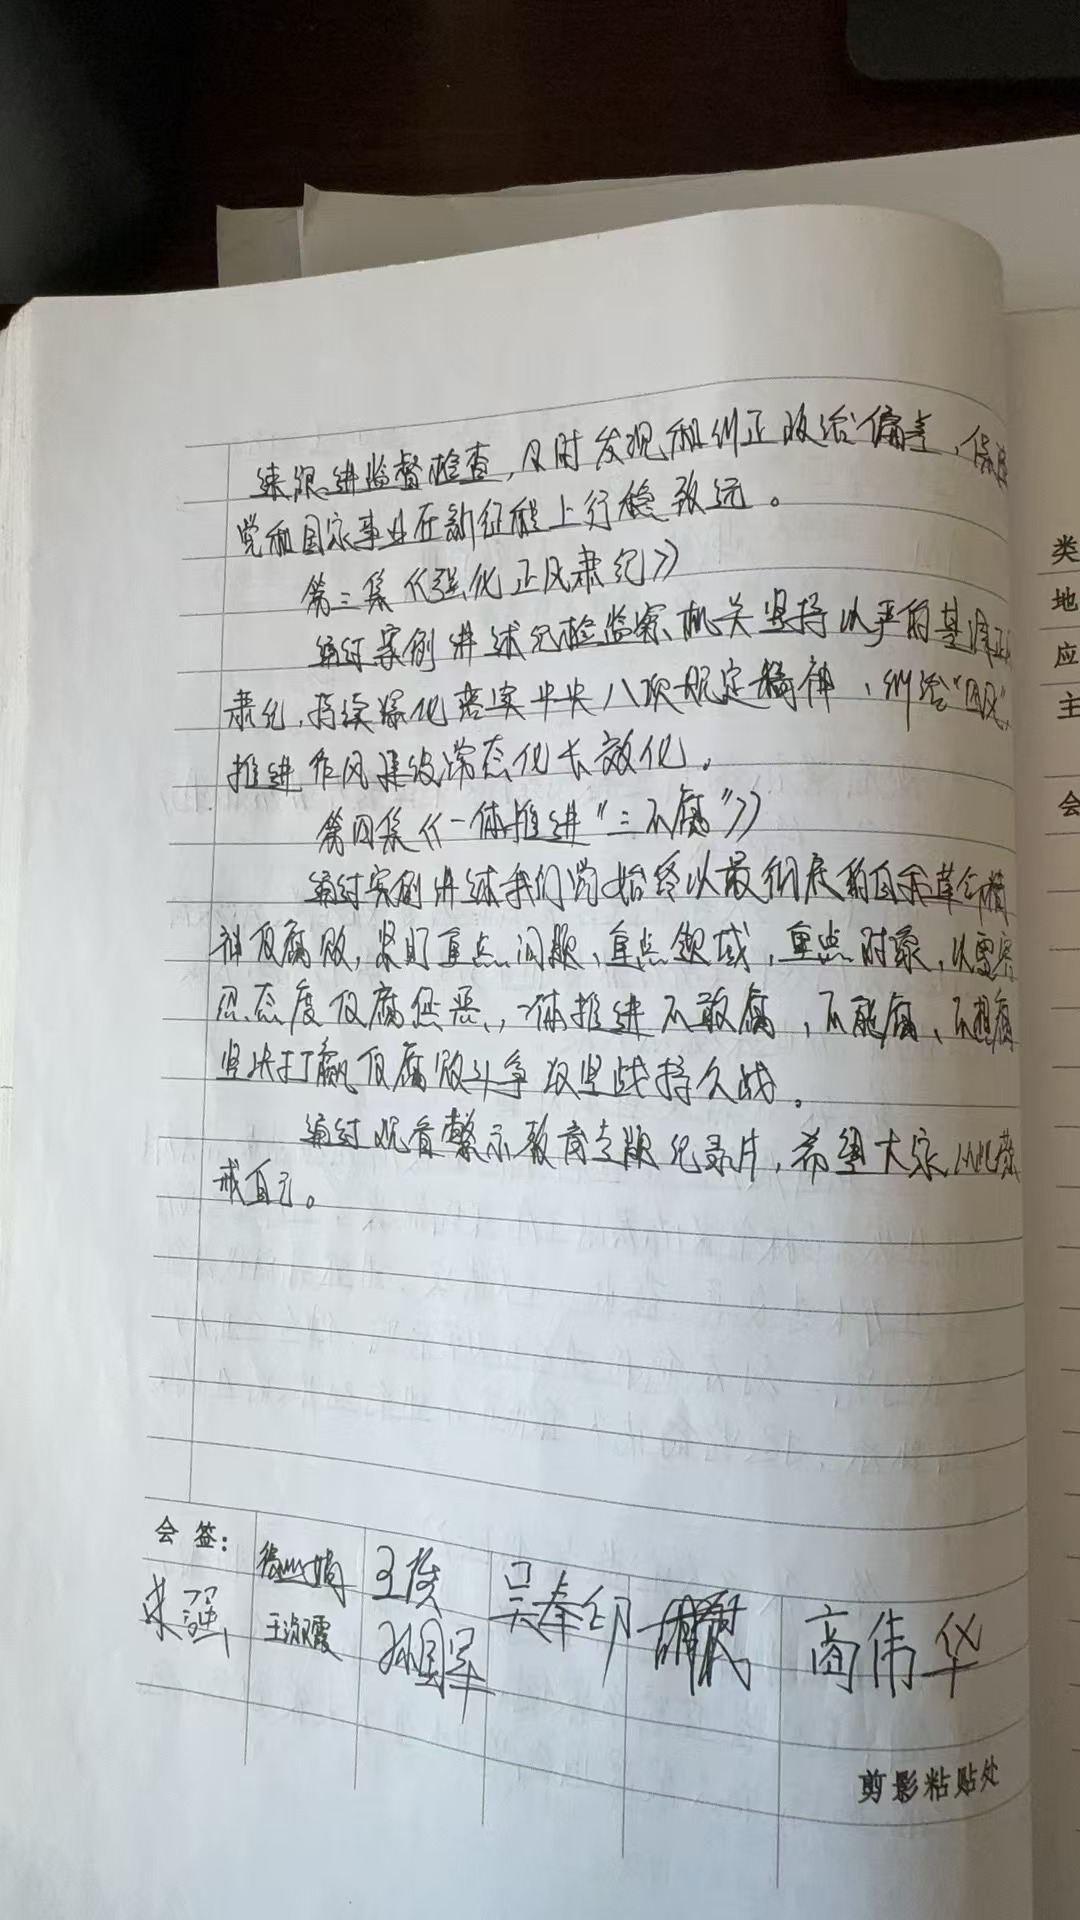 续跟进监督检查，及时发现和纠正政治偏差，保障
党和国家事业在新征程上行稳致远。
第三集《强化正风肃纪》
通过案例讲述纪检监察机关坚持以严的基调正风
肃纪，持续深化落实中央八项规定精神，纠治“四风”，
推进作风建设常态化长效化。
第四集《一体推进“三不腐”》
通过实例讲述我们党始终以最彻底的自我革命精
神反腐败，紧盯重点问题、重点领域，重点对象，以零容
忍态度反腐惩恶，一体推进不敢腐，不能腐、不想腐
坚决打赢反腐败斗争攻坚战持久战。
通过观看警示教育专题纪录片，希望大家以此警
戒自己。
会签：
王俊
吴奉印
商伟华
强
王淑霞
孙国军
剪影粘贴处
类
地
应
主
会